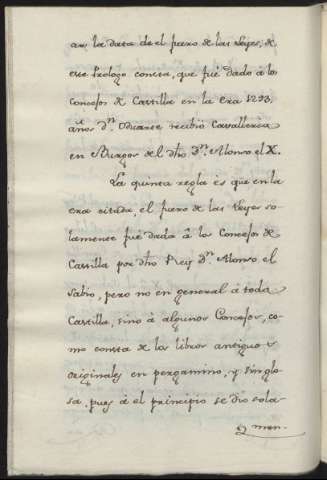 as, la data de el fuero de las Leyes, de
este Prologo consta, que fué dado á los
Concejos de Castilla en la era 1293.
años dn. Duarte recibio Cavalleria
en Burgos de el dho Dn. Alonso el X.
La quinta regla és que en la
era citada, el fuero de las Leyes so-
lamente fué dado á los Concejos de
Castilla por dho Rey Dn. Alonso el
Sabio, pero no en general á toda
Castilla, sino á algunos Concejos, co-
mo consta de los libros antiguos
originales en pergamino, y sin glo-
sa, pues á el principio se dio sola-
men-